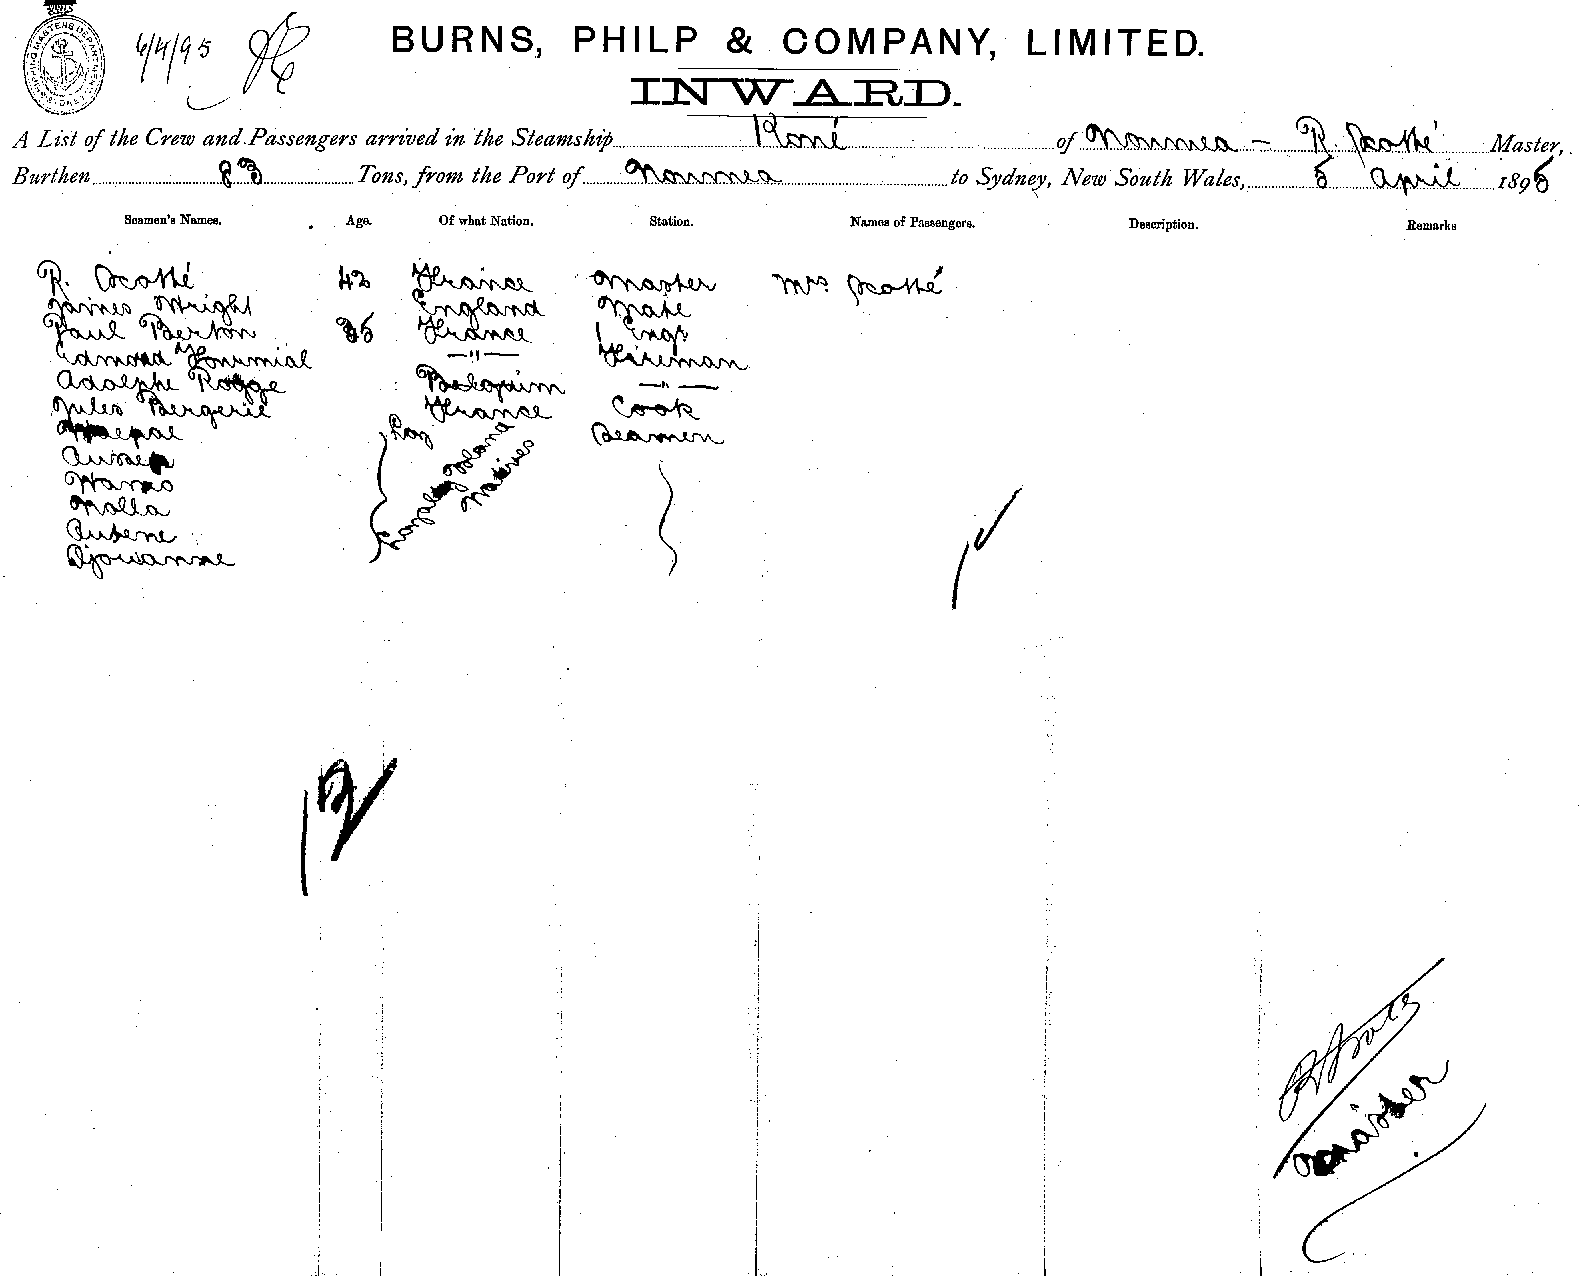 6/4/95
BURNS, PHILP & COMPANY, LIMITED.
INWARD.
A List of the Crew and Passengers arrived in the Steamship Koné of Noumea - R. Master,
Burthen 83 Tons, from the Port of Noumea to Sydney, New South Wales, 5 April 1895
Seamen's Names. Age. Of what Nation. Station. Names of Passengers. Description. Remarks
R. 42 France Master Mrs
James Wright England Mate
Paul Berton 35 France 1 Engr
Edmond —"— Fireman
Adolphe Rogge Belgium —"—
Jules Bergerie France Cook
Loy Seamen
Island
Wamo Natives
Nolla
Autene
Djouanne
12
Master